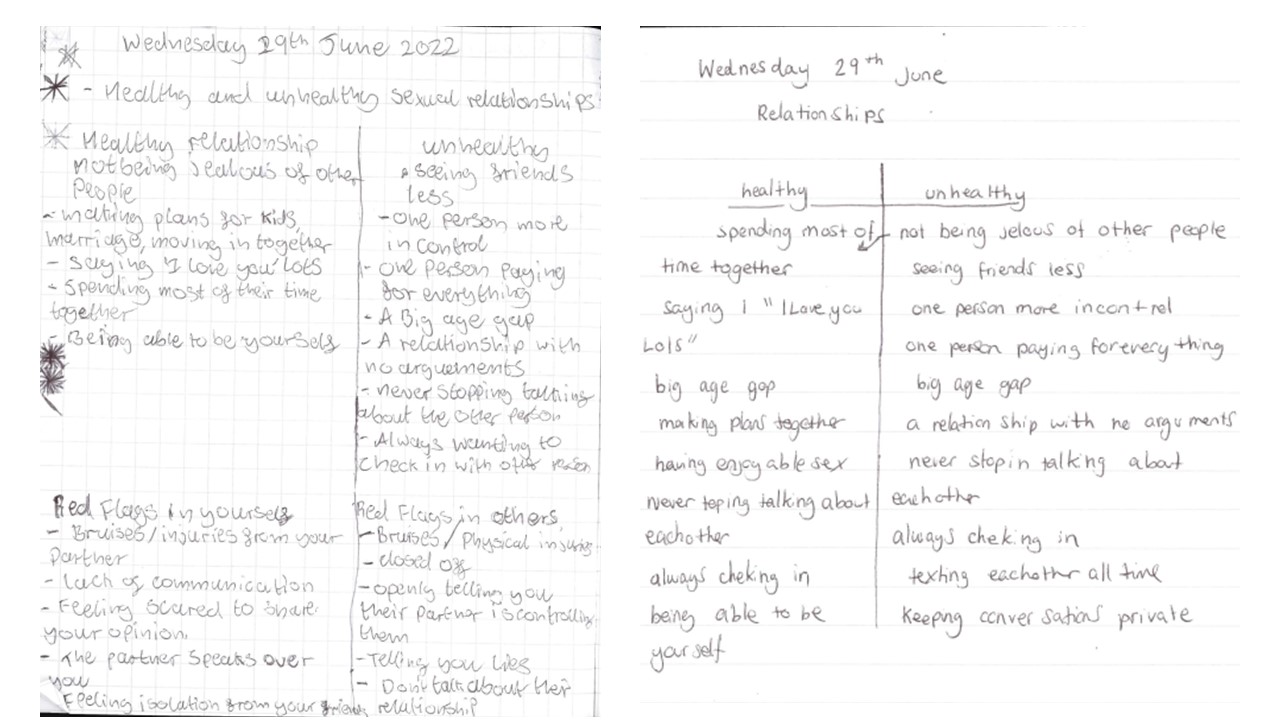 Wednesday 29th June 2022
- Healthy and unhealthy sexual relationships
Healthy relationship
Not being jealous of other
People
- making plans for kids,
marriage, moving in together
- Saying 'I love you' lots
- Spending most of their time
together
- Being able to be yourself
unhealthy
• seeing friends
less
- one person more
in control
- one person paying
for everything
- A Big age gap
- A relationship with
no arguements
- never stopping talking
about the other person
- Always wanting to
check in with other person
Red Flags in yourself
- Bruises/injuries from your
Partner
- Lack of communication
- Feeling scared to share
your opinion
- The partner speaks over
you
Feeling isolation from your friends
Red Flags in others
- Bruises/Physical injuries
- closed off
- openly telling you
their partner is controlling
them
- Telling you lies
- Don't talk about their
relationship
Wednesday 29th June
Relationships
healthy
spending most of
time together
saying I "I Love you
Lots"
big age gap
making plans together
having enjoyable sex
never toping talking about
eachother
always cheking in
being able to be
yourself
unhealthy
not being jelous of other people
seeing friends less
one person more incontrol
one person paying forevery thing
big age gap
a relation ship with no arguments
never stopin talking about
eachother
always cheking in
texting eachother all time
keeping conver sations private